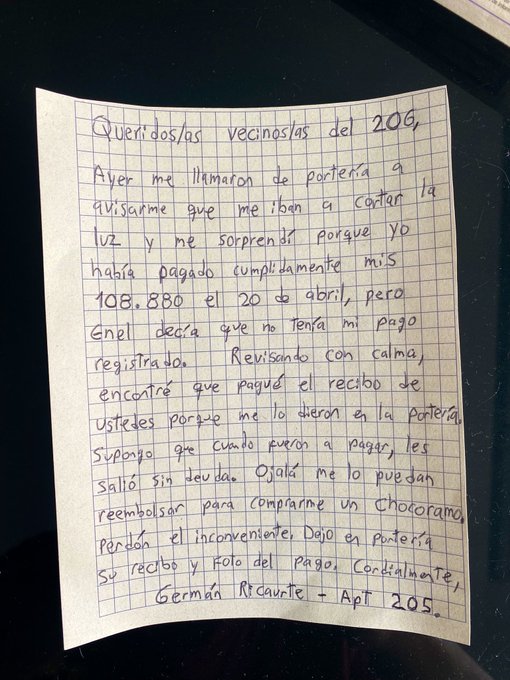 Queridos/as vecinos/as del 206,
Ayer me llamaron de portería a
avisarme que me iban a cortar la
luz y me sorprendí porque yo
había pagado cumplidamente mis
108.880 el 20 de abril, pero
Enel decía que no tenía mi pago
registrado. Revisando con calma,
encontré que pagué el recibo de
ustedes porque me lo dieron en la portería.
Supongo que cuando fueron a pagar, les
salió sin deuda. Ojalá me lo puedan
reembolsar para comprarme un Chocoramo.
Perdón el inconveniente. Dejo en portería
su recibo y foto del pago. Cordialmente,
Germán Ricaurte - Apt 205.